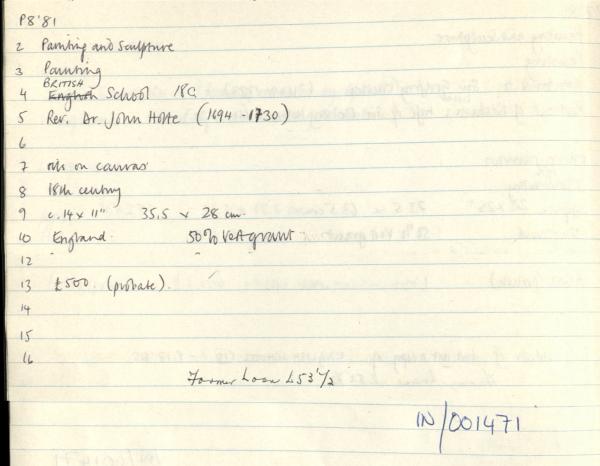 P8'81
2 Painting and Sculpture
3 Painting
BRITISH
4 English School 18C
5 Rev. Dr. John Holte (1694 - 1730)
6
7 oils on canvas
8 18th century
9 c. 14 x 11" 35.5 x 28 cm.
10 England. 50% V&A grant
12
13 £500 (probate).
14
15
16
Former Loan L53'1/2
IN/001471